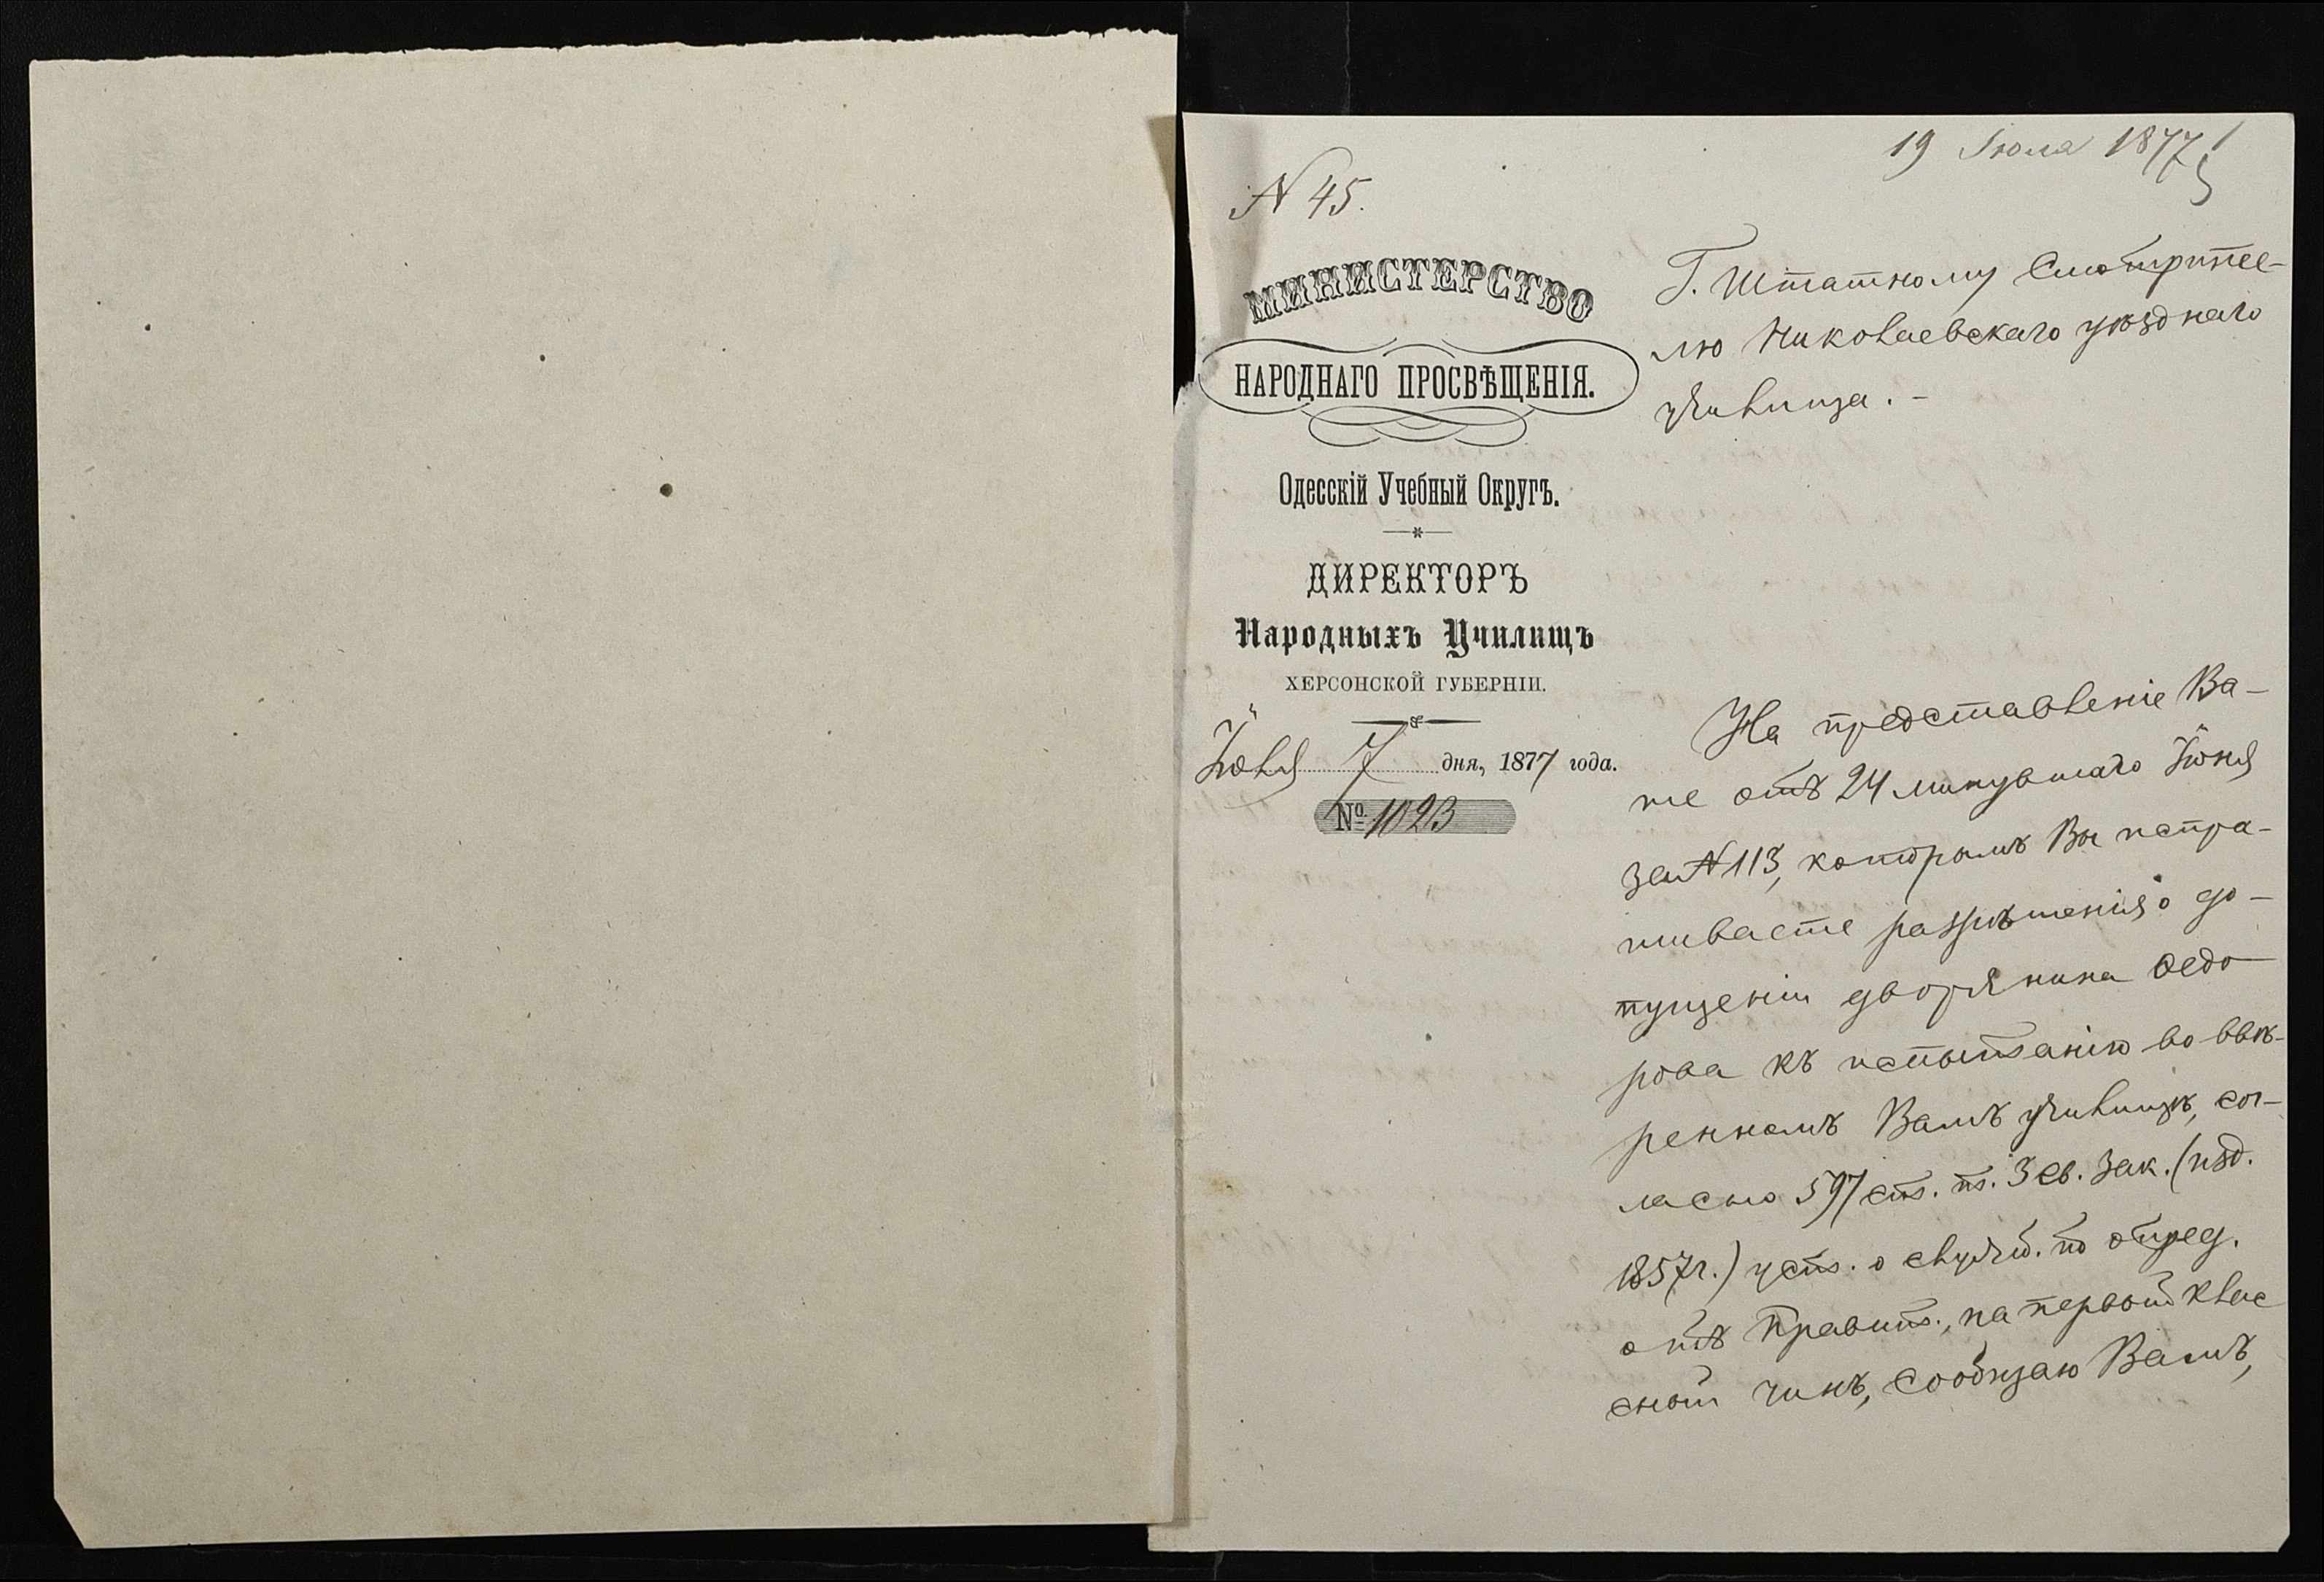 19 Июля 1877
N 45.
МИНИСТЕРСТВО
НАРОДНАГО ПРОСВѢЩЕНІЯ.
Одесскій Учебный Округъ.
ДИРЕКТОРЪ
Народныхъ Училищъ
ХЕРСОНСКОЙ ГУБЕРНІИ.
Іюля 7 дня, 1877 года.
№ 1023
Г. Штатному Смотрите-
лю Николаевскаго уѣзднаго
училища. -
На представленіе Ва-
ше отъ 24 минувшаго Іюня
за N 113, которымъ Вы испра-
шиваете разрѣшенія о до-
пущеніи дворянина Федо
рова къ испытанію во ввѣ-
ренномъ Вамъ училищѣ, сог-
ласно 597 ст. т. 3 св. Зак. (изд.
1857 г.) уст. о служб. по опред.
отъ Правит., на первый клас
сный чинъ, сообщаю Вамъ,